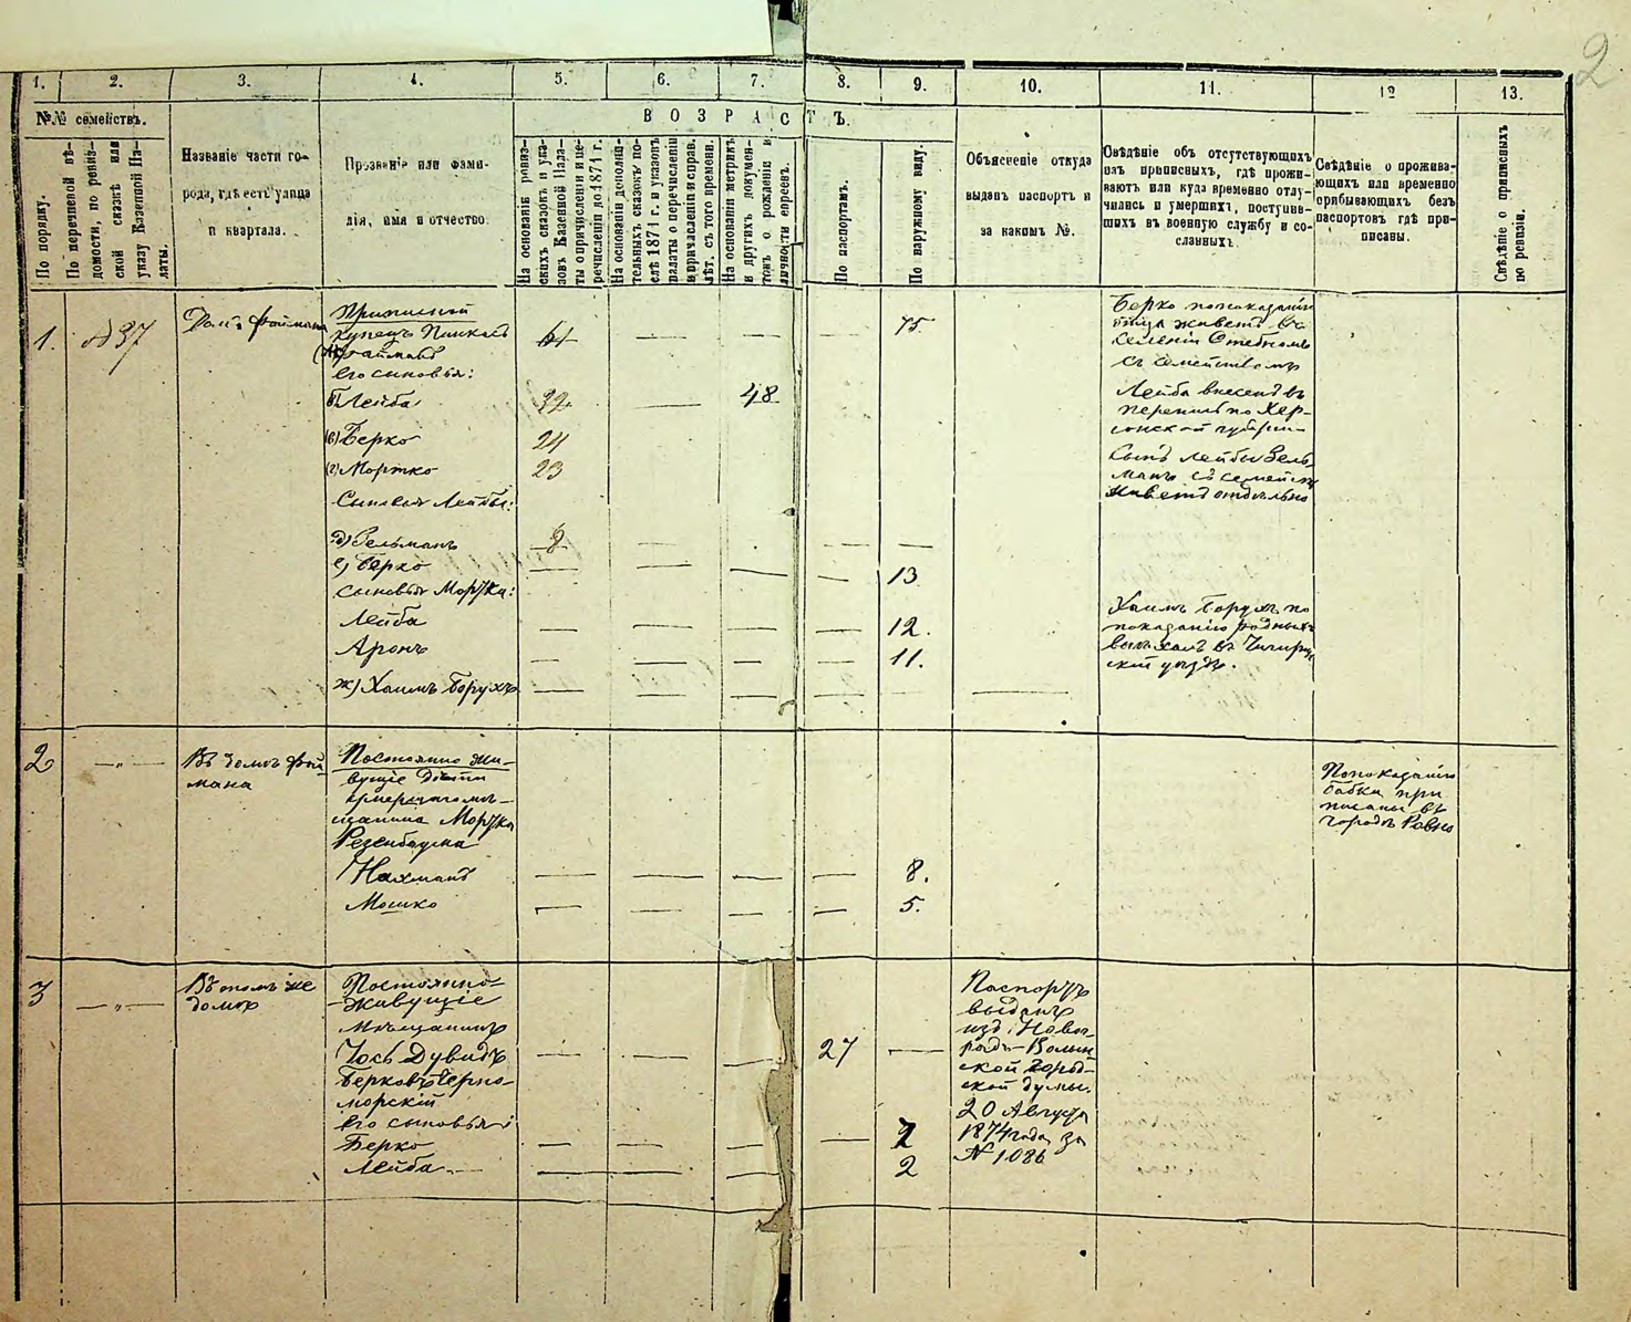 2
1.
2.
3.
4.
5.
6.
7.
8.
9.
10.
11.
12
13.
№№ семействъ.
ВОЗРАСТЪ.
По порядку.
По перечневой вѣ-
домости, по ревиз-
ской сказкѣ или
указу Казенной Па-
латы.
Названіе части го-
рода, гдѣ есть улица
и квартала.
Прозваніе или фами-
лія, имя и отчество.
На основаніи ревиз-
скихъ сказокъ и ука-
зовъ Казенной Пала-
ты о причисленіи и пе-
речисленіи до 1871 г.
На основаніи дополни-
тельныхъ сказокъ по-
слѣ 1871 г. и указовъ
палаты о перечисленіи
и причисленіи и справ.
лѣт. съ того времени.
На основаніи метрикъ
и другихъ докумен-
товъ о рожденіи и
личности евреевъ.
По паспортамъ.
По наружному виду.
Объясненіе откуда
выданъ паспортъ и
за какимъ №.
Свѣдѣніе объ отсутствующихъ
изъ приписныхъ, гдѣ прожи-
ваютъ или куда временно отлу-
чились и умершихъ, поступив-
шихъ въ военную службу и со-
сланныхъ.
Свѣдѣніе о прожива-
ющихъ или временно
прибывающихъ безъ
паспортовъ гдѣ при-
писаны.
Свѣдѣніе о приписныхъ
по ревизіи.
1.
№ 37
Домъ Файмана
Приписной
купецъ Пинкасъ
Файманъ
его сыновья:
61
75
б) Лейба
32
48
в) Берко
24
г) Мортко
23
Сыновья Лейбы:
д) Зельманъ
8
е) Берко
13
сыновья Мортка:
Лейба
12.
Аронъ
11.
ж) Хаимъ Борухъ
Берко по показанію
отца живетъ въ
селеніи
съ семействомъ
Лейба внесенъ въ
перепись по Хер-
сонской губерніи
Сынъ Лейбы Зель-
манъ съ семейст.
живетъ отдѣльно
Хаимъ Борухъ по
показанію родныхъ
выѣхалъ въ Чигирин-
скій уѣздъ.
2
— „ —
Въ домѣ Фай-
мана
Постоянно жи-
вущіе дѣти
мѣ-
щанина Мортка
Резенбаума
Нахманъ
8.
Мошко
5.
По показанію
бабки при-
писаны въ
городѣ Ровно
3
— „ —
Въ томъ же
домѣ
Постоянно-
живущіе
мѣщанинъ
Іось Дувидъ
Берковъ Черно-
морскій
его сыновья:
27
Берко
7
Лейба
2
Паспортъ
выданъ
изъ Новог-
радъ-Волын-
ской город-
ской думы.
20 Августа
1874 года за
№ 1086